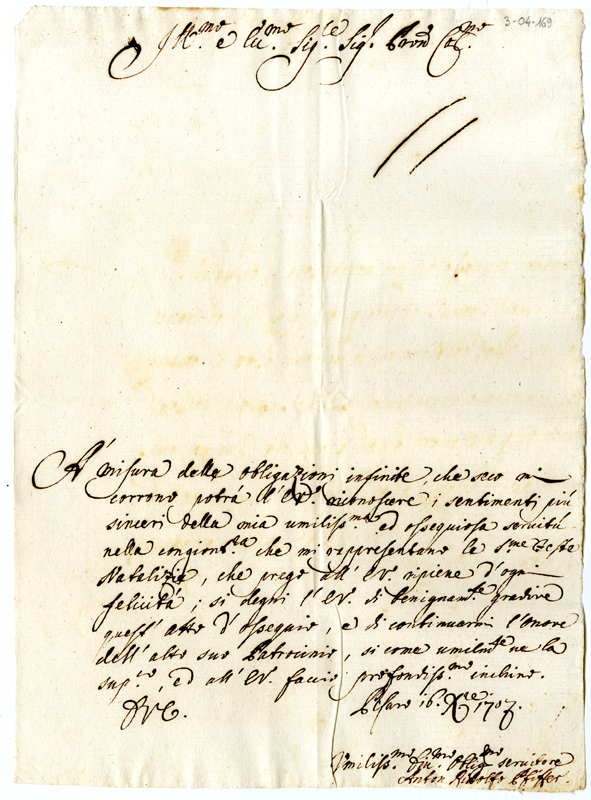 3-04-169
Ill.mo e Ecc.mo Sig.re Sig.r Pron Col.mo
A' misura delle obligazioni infinite, che seco mi
corrono potrà l'EV. riconosere i sentimenti più
sinceri della mia umiliss.ma ed ossequiosa servitù
nella congiont.ra che mi rappresentano le S.me Feste
Natalizie, che prego all'EV. ripiene d'ogni
felicità; si degni l'EV. di benignam.te gradire
quest'atto d'ossequio, e di continuarmi l'onore
dell'alto suo Patrocinio, si come umilm.te ne la
sup.co, ed all'EV. faccio profondiss.mo inchino.
Pesaro 16. Xre 1707.
Umiliss.mo Oblig.mo servitore
Anton Ridolfo Pfiffer.